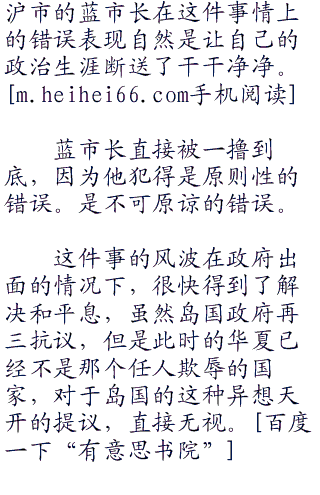 沪市的蓝市长在这件事情上
的错误表现自然是让自己的
政治生涯断送了干干净净。
[m.heihei66.com手机阅读]
蓝市长直接被一撸到
底，因为他犯得是原则性的
错误。是不可原谅的错误。
这件事的风波在政府出
面的情况下，很快得到了解
决和平息，虽然岛国政府再
三抗议，但是此时的华夏已
经不是那个任人欺辱的国
家，对于岛国的这种异想天
开的提议，直接无视。[百度
一下“有意思书院”]